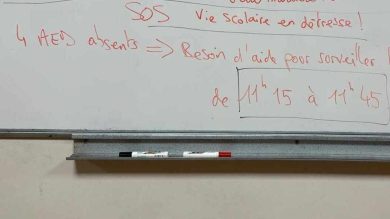 SOS Vie scolaire en détresse !
4 AED absents => Besoin d'aide pour surveiller !
de 11h15 à 11h45